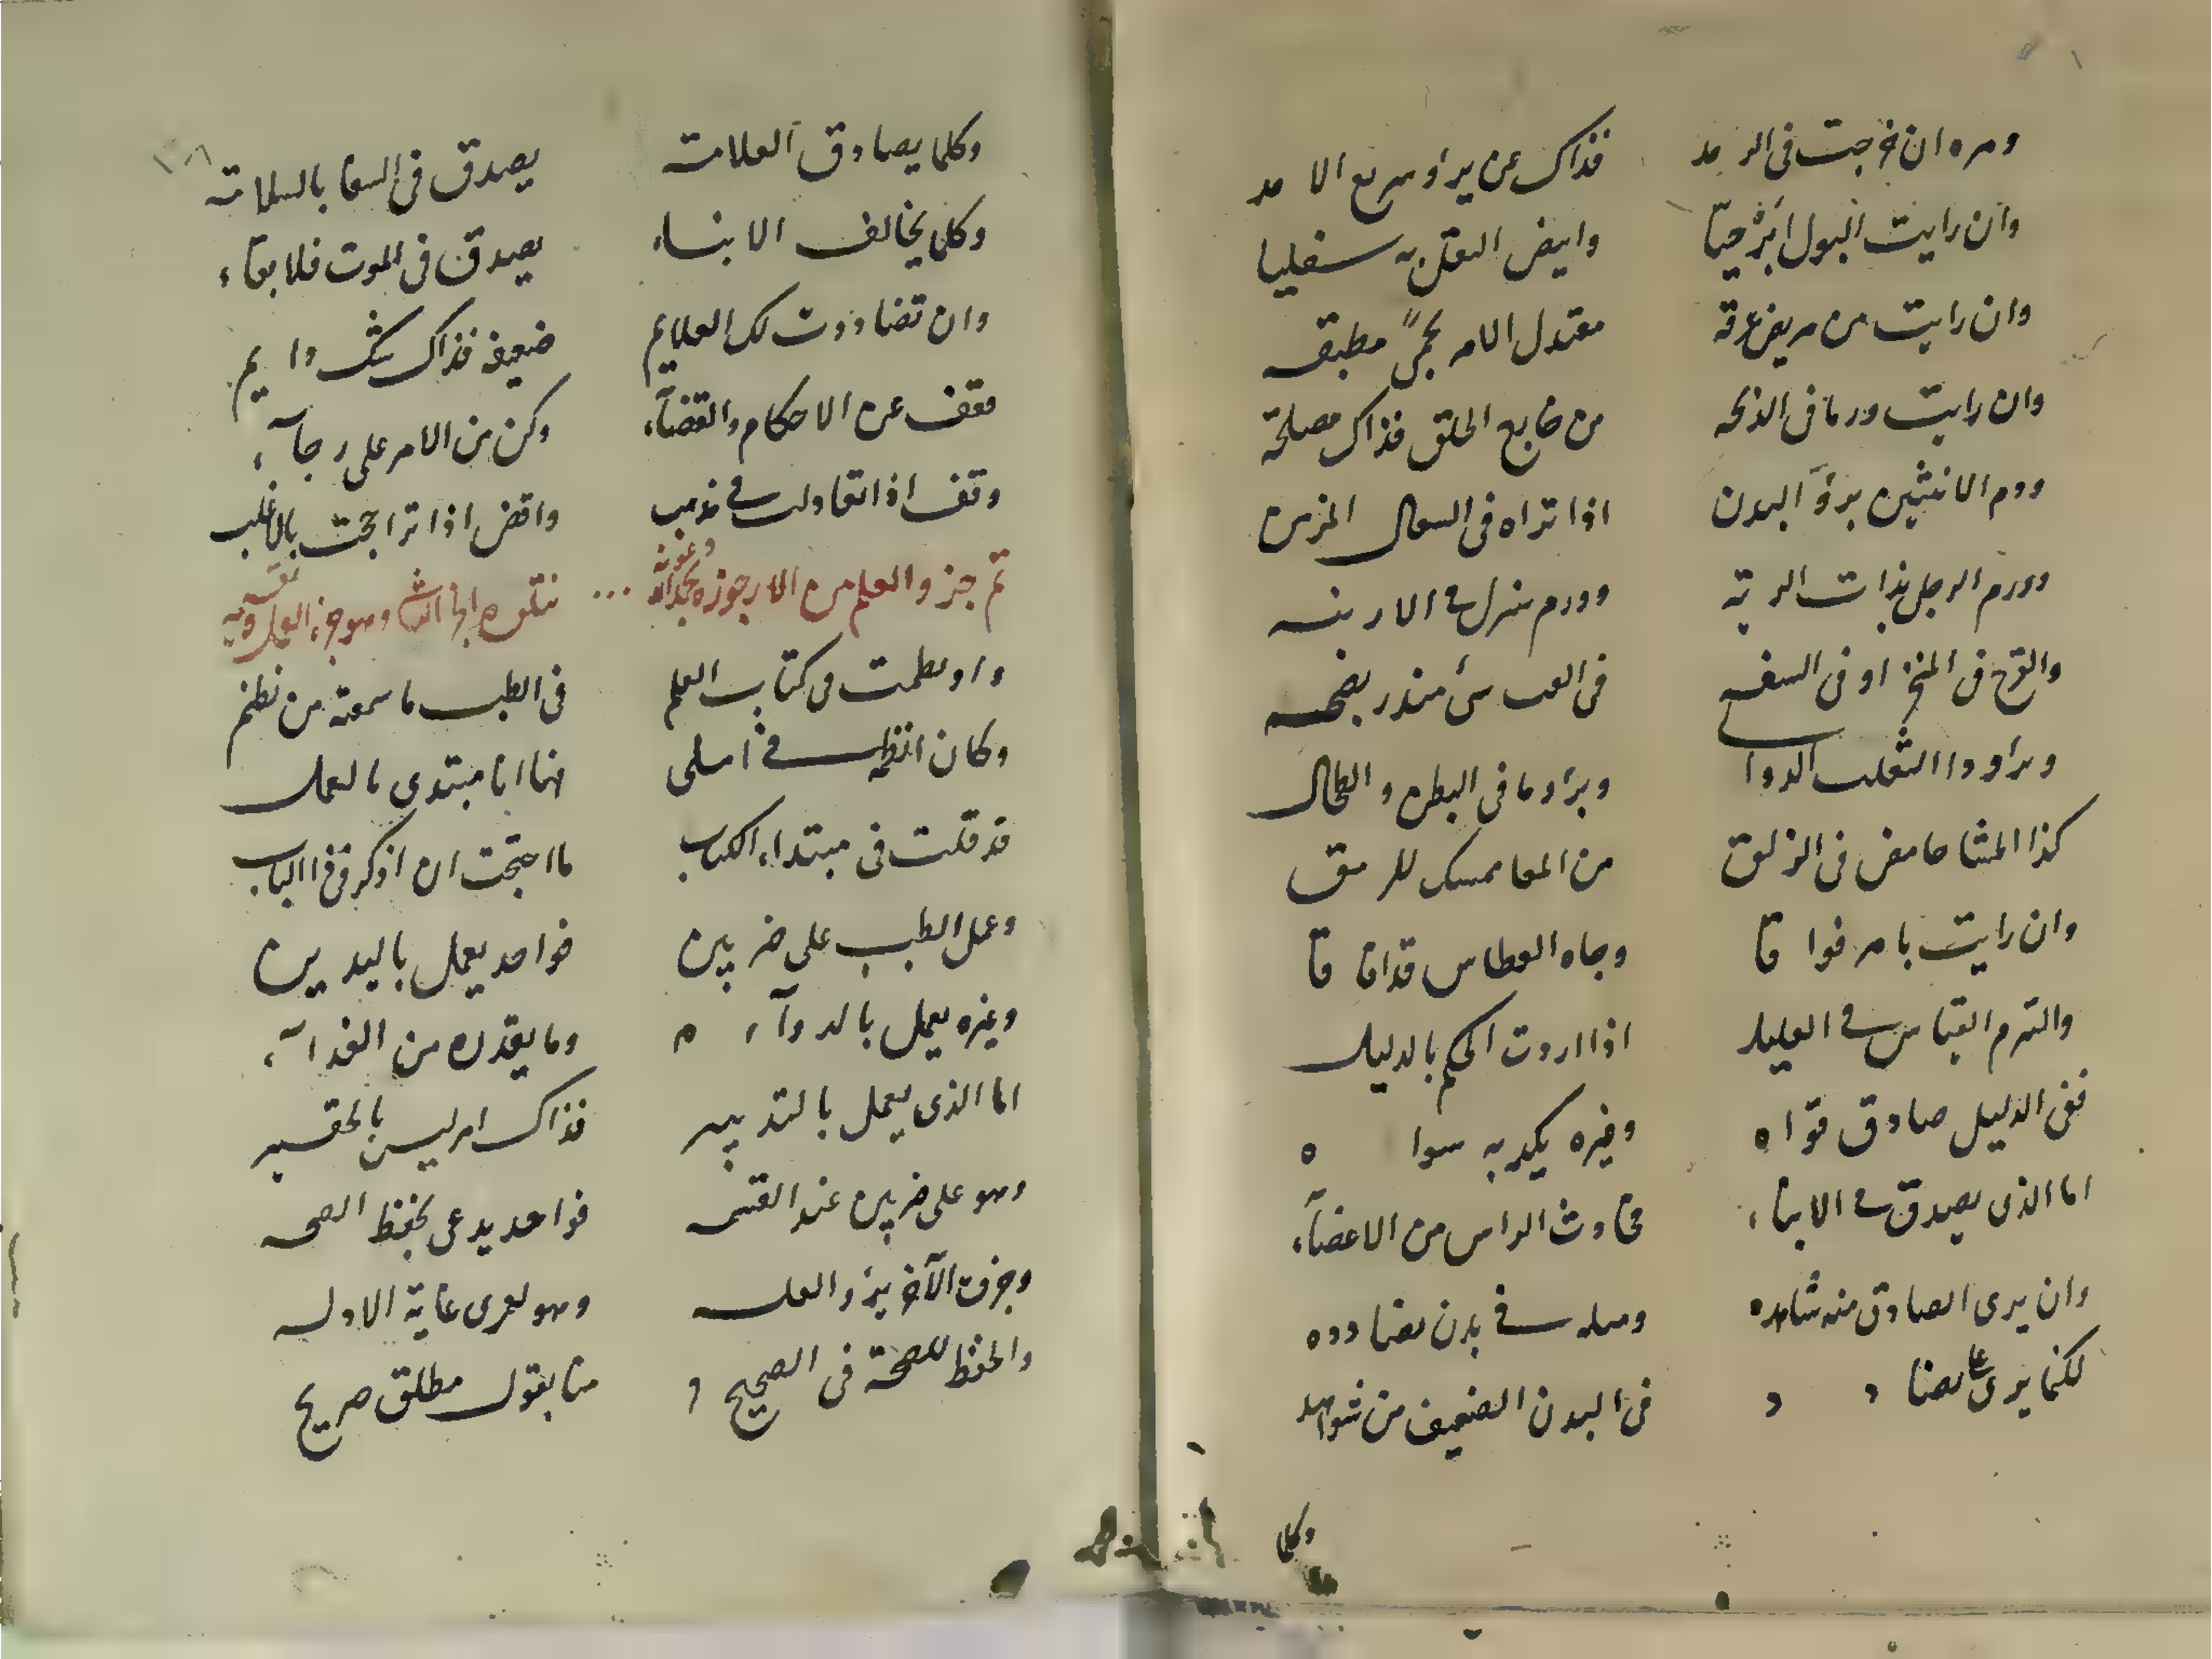 ومره ان خرجت فى الرمد فذاك عن برؤ سريع الامد
وان رايت البول اترجيا وابيض الثفل به سفليا
وان رايت من مريض عرقه معتدل الامر بحمى مطبقه
وان رايت ورما فى الذبحه من خارج الحلق فذاك مصلحة
وورم الانثيين برؤ البدن اذا تراه فى السعال المزمن
وورم الرجل بذات الرية وورم منزل فى الاربنه
والقرح فى المنخر او فى الشفه فى الغب شئ منذر بضحه
وبراو داا الثعلب الدوالى وبراو ما فى البطن والطحال
كذا المشا حامض فى الزلق من المعا ممسك للرمق
وان رايت بامر فواقا وجاه العطاس قد افاقا
والتزم القياس فى العليل اذا اردت الحكم بالدليل
ففى الدليل صادق قواه وغيره يكدبه سواه
اما الذى يصدق فى الانباء فحادث الراس من الاعضآء
وان يرى الصادق منه شاهده ومىله فى بدن يضادده
لكنما يرى يضادد فى البدن الضعيف من شواهد
وكلما
١٠٨
وكلما يصادق العلامته يصدق فى السقا بالسلامته
وكلما يخالف الانباء يصدق فى الموت فلا بقاء
وان تضاددت لك العلايم ضعيفه فذاك شك دايم
فقف عن الاحكام والقضآء وكن من الامر على رجآء
وقف اذا تعادلت فى مذهب واقض اذا تراجحت بالاغلب
تم جزو العلم من الارجوزه بحمد الله وعونه ... نتلوه الثانى وهو جزء العمل وبه ثقته
واو نظمت فى كتاب العلم فى الطب ما سمعته من نظم
وكان انظمه فى املى فها انا مبتدى بالعمل
قد قلت فى مبتداء الكتاب ما احتجت ان اذكر فى ذا الباب
وعمل الطب على ضربين فواحد يعمل باليدين
وغيره يعمل بالدوآء وما يقدره من الغدآء
اما الذى يعمل بالتدبير فذاك امر ليس بالحقير
وهو على ضربين عند القسمه فواحد يدعى بحفظ الصحه
وجزو الآخر يبرؤ العله وهو لعمرى غاية الاوله
والحفظ للصحة فى الصحيح منا بقول مطلق صريح